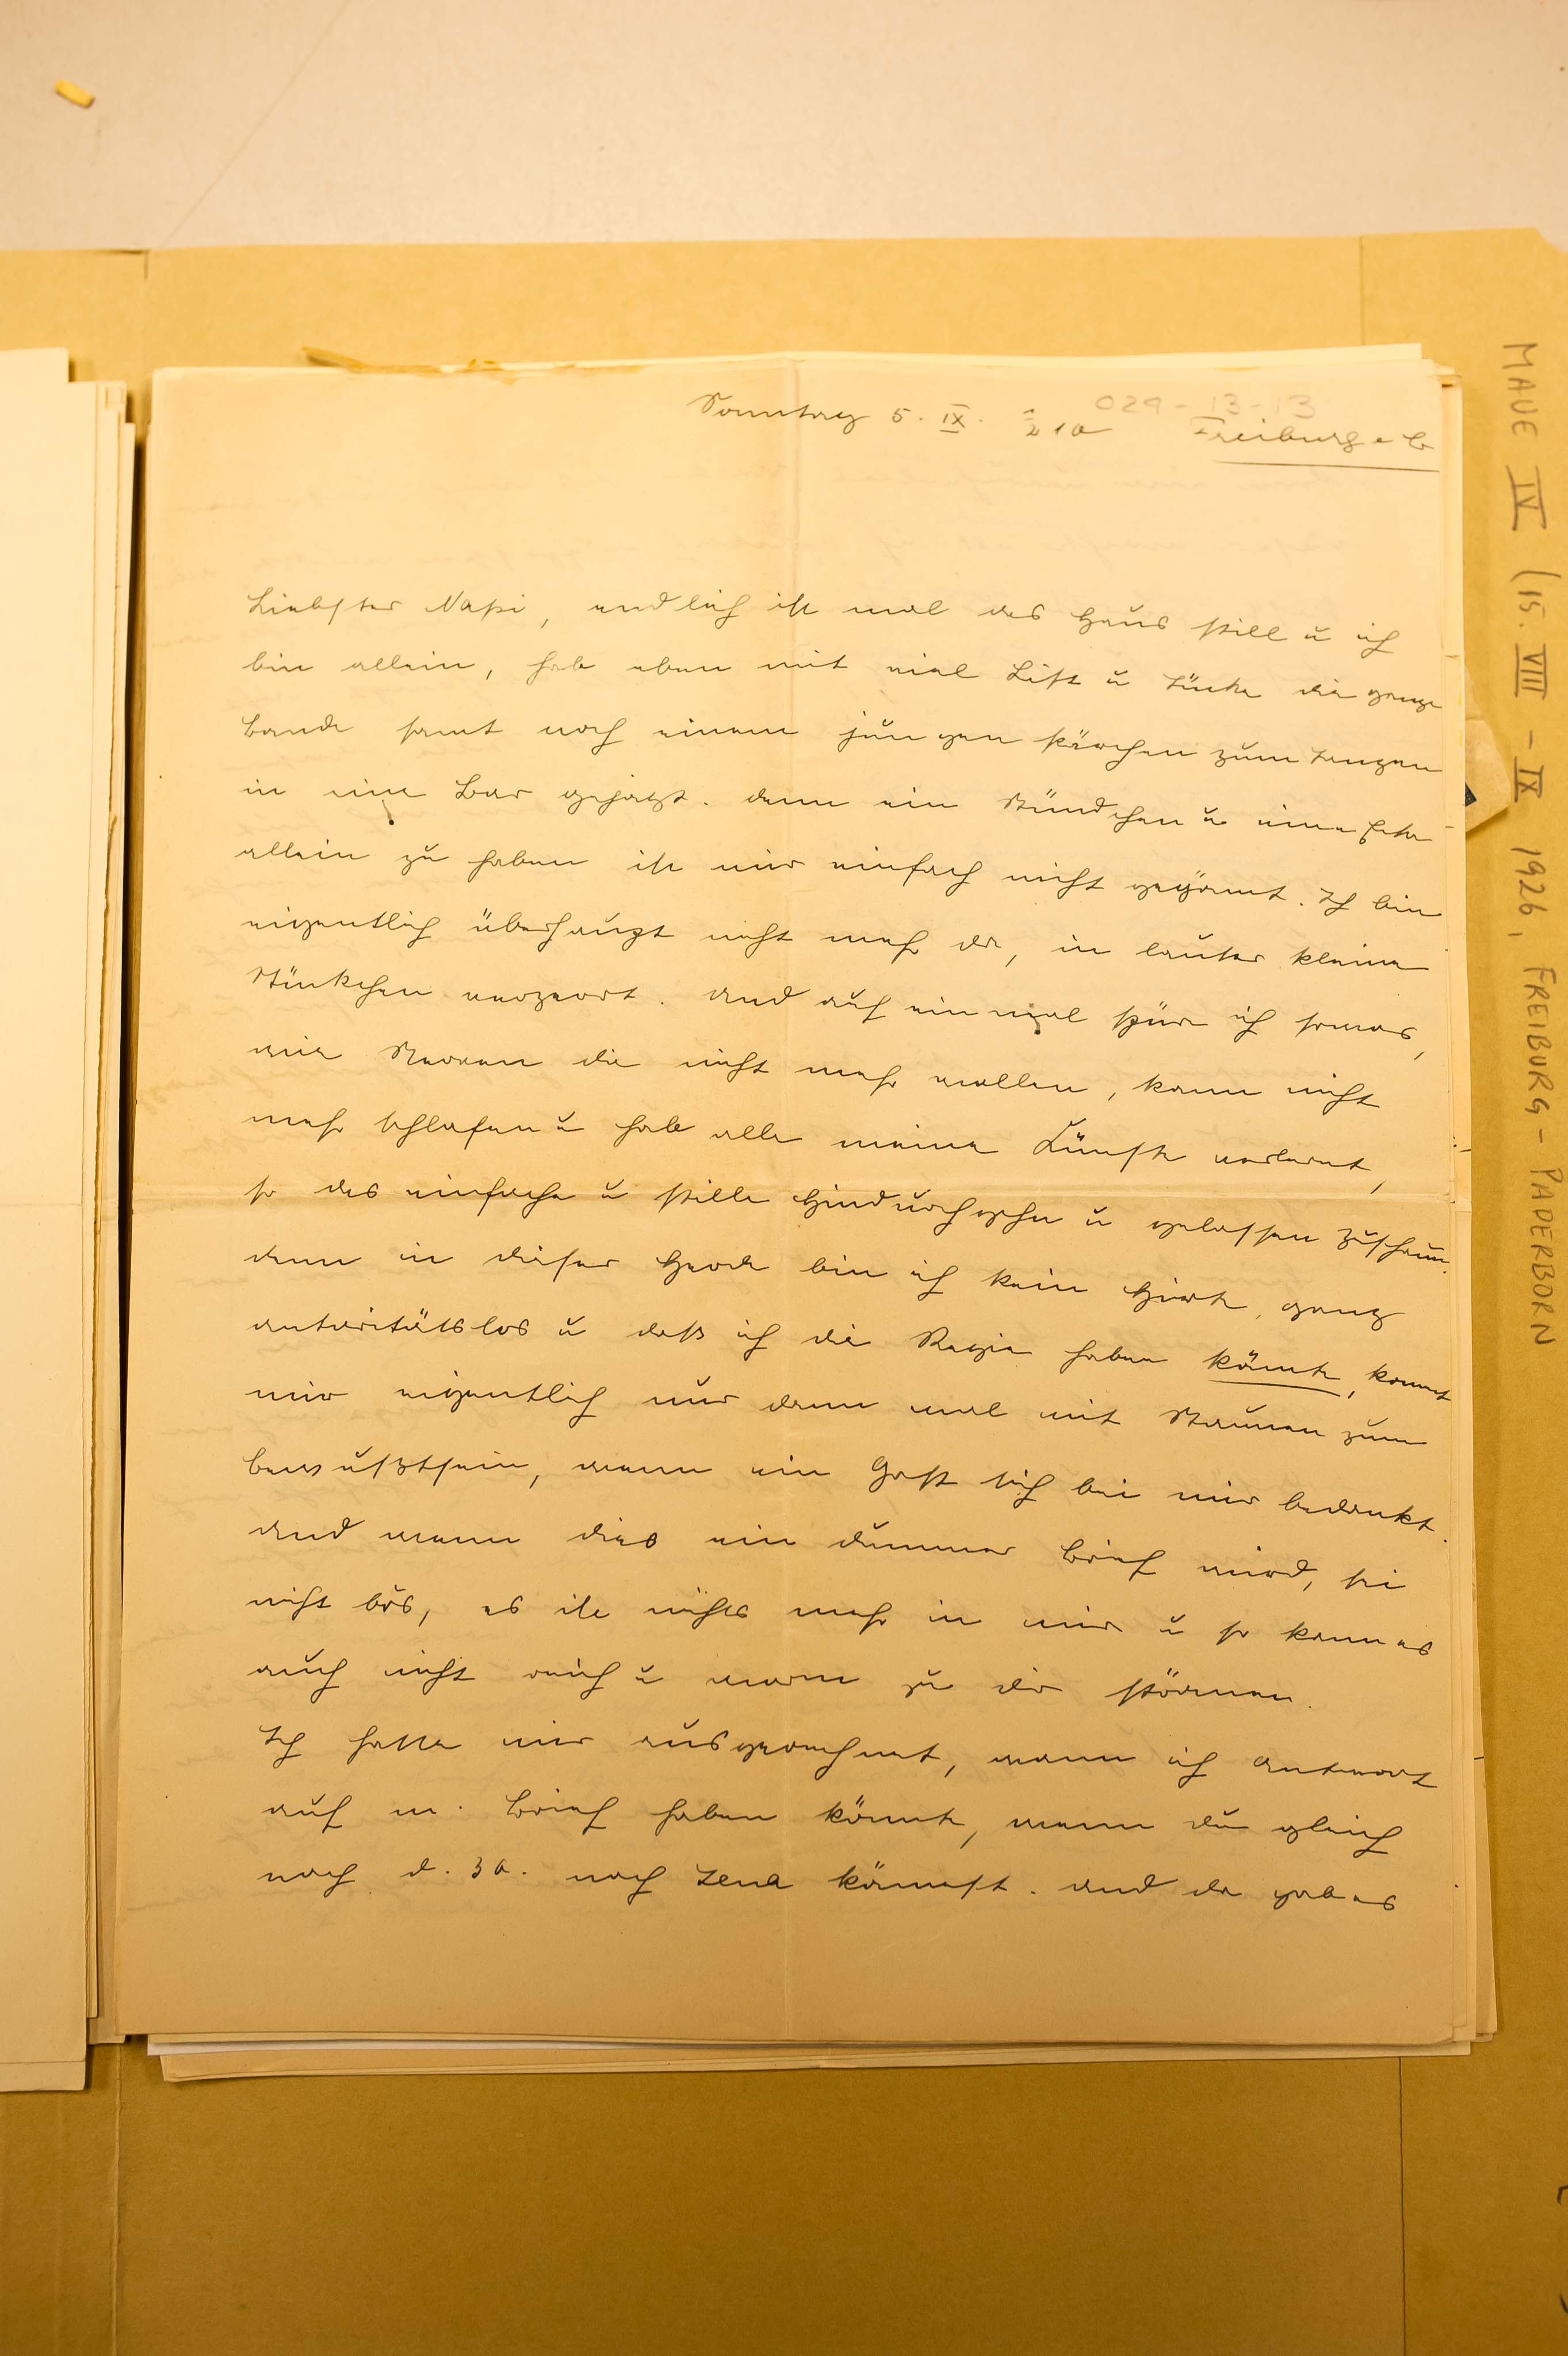 029-13-13
Sonntag 5. IX. ½ 10 Freiburg i B
Liebster Nafri, endlich ist mal das Haus still u ich
bin allein, hab eben mit viel List u Tücke die ganze
Bande samt noch einem jungen Pärchen zum Tanzen
in eine Bar gejagt. denn ein Stündchen u eine Ecke
allein zu haben ist mir einfach nicht gegönnt. Ich bin
eigentlich überhaupt nicht mehr da, in lauter kleine
Stückchen verzerrt. Und auf einmal spür ich sowas,
wie Nerven die nicht mehr wollen, kann nicht
mehr schlafen u hab alle meine Künste verlernt,
so das einfache u stille Hindurchgehn u gelassen Zuschaun.
denn in dieser Herde bin ich kein Hirte, ganz
autoritätslos u daß ich die Regie haben könnte, kommt
mir eigentlich nur dann mal mit Staunen zum
Bewußtsein, wenn ein Gast sich bei mir bedankt.
Und wenn dies ein dummer Brief wird, sei
nicht bös, es ist nichts mehr in mir u so kann es
auch nicht reich u warm zu dir strömen.
Ich hatte mir ausgerechnet, wann ich Antwort
auf m. Brief haben könnte, wenn du gleich
nach d. 30. nach Jena kämest. Und da gab es
MAUE IV (15. VIII - IX 1926, FREIBURG - PADERBORN